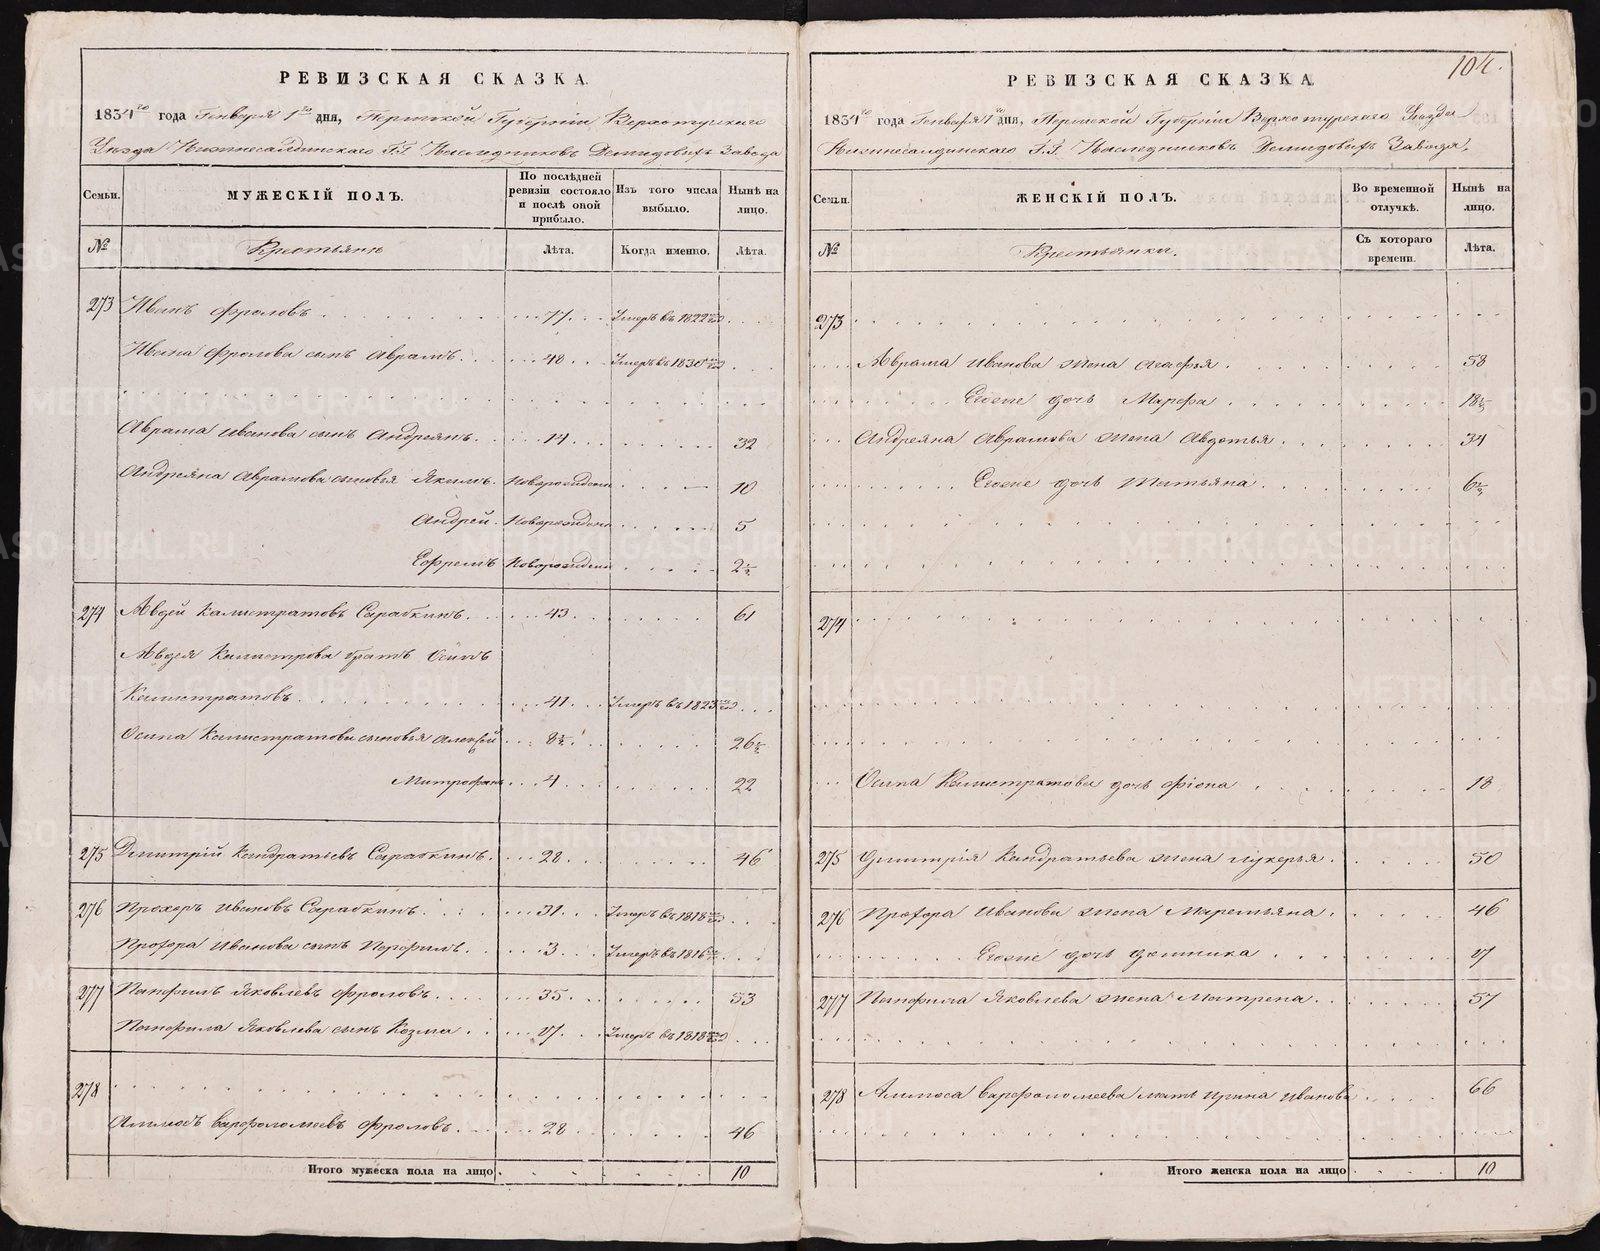 РЕВИЗСКАЯ СКАЗКА.
1834го года Генваря 1го дня, Пермской Губерніи Верхотурскаго
Уѣзда Нижнесалдинскаго Г.Г. Наслѣдниковъ Демидовыхъ Завода
Семьи. МУЖЕСКІЙ ПОЛЪ. По послѣдней ревизіи состояло и послѣ оной прибыло. Изъ того числа выбыло. Нынѣ на лицо.
№ Крестьянъ Лѣта. Когда именно. Лѣта.
273 Иванъ Фроловъ 77 Умеръ въ 1822 году
Ивана Фролова сынъ Аврамъ 48 Умеръ въ 1830 году
Аврама Иванова сынъ Андреянъ 14 32
Андреяна Аврамова сыновья Якимъ Новорожденъ 10
Андрей Новорожденъ 5
Ефремъ Новорожденъ 2½
274 Авдей Калистратовъ Сарабкинъ 43 61
Авдея Калистрова братъ Осипъ
Калистратовъ 41 Умеръ въ 1823 году
Осипа Калистратова сыновья Алексѣй 8½ 26½
Митрофанъ 4 22
275 Дмитрій Кандратьевъ Сарабкинъ 28 46
276 Прохоръ Ивановъ Сарабкинъ 31 Умеръ въ 1818 году
Прохора Иванова сынъ Порфилъ 3 Умеръ въ 1816 году
277 Панфилъ Яковлевъ Фроловъ 35 53
Панфила Яковлева сынъ Козма 17 Умеръ въ 1818 году
278
Алимпсъ Варфоломеевъ Фроловъ 28 46
Итого мужеска пола на лицо 10
104.
РЕВИЗСКАЯ СКАЗКА.
1834го года Генваря 1го дня, Пермской Губерніи Верхотурскаго Уѣзда
Нижнесалдинскаго Г.Г. Наслѣдниковъ Демидовыхъ Завода.
Семьи. ЖЕНСКІЙ ПОЛЪ. Во временной отлучкѣ. Нынѣ на лицо.
№ Крестьянки. Съ котораго времени. Лѣта.
273
Аврама Иванова жена Агафья 58
Ево же дочь Марфа 18½
Андреяна Аврамова жена Авдотья 34
Ево же дочь Татьяна 6½
274
Осипа Калистратова дочь Фіона 18
275 Дмитрія Кандратьева жена Лукерья 50
276 Прохора Иванова жена Маремьяна 46
Ево же дочь Домника 17
277 Панфила Яковлева жена Матрена 57
278 Варфоломеева мать Ирина Иванова 66
Итого женска пола на лицо 10
METRIKI.GASO-URAL.RU